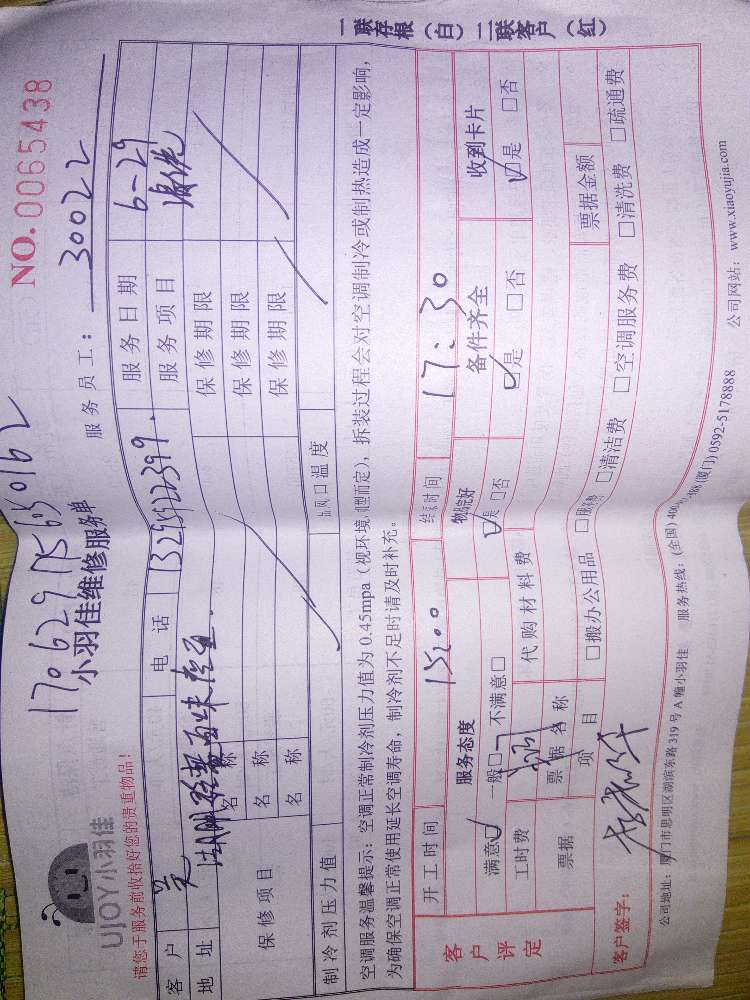 一联存根（白）二联客户（红）
NO.0065438
UJOY小羽佳
小羽佳维修服务单
服务员工：30022
请您于服务前收拾好您的贵重物品！
客 户 电 话 服务日期 6-29
地 址 服务项目
保修项目 名 称 保修期限
名 称 保修期限
名 称 保修期限
制冷剂压力值 出风口温度
空调服务温馨提示：空调正常制冷剂压力值为 0.45mpa（视环境温度而定），拆装过程会对空调制冷或制热造成一定影响，
为确保空调正常使用延长空调寿命，制冷剂不足时请及时补充。
客户评定 开工时间 15:00 结束时间 17:30
服务态度 物品完好 备件齐全 收到卡片
满意□ 一般□ 不满意□ □是 □否 □是 □否 □是 □否
工时费 代购材料费
票据 票据名称 票据金额
项 目 □搬办公用品 □服务费 □清洁费 □空调服务费 □清洗费 □疏通费
客户签字：
公司地址：厦门市思明区湖滨东路 319 号 A 幢小羽佳 服务热线：(全国) (厦门) 0592-5178888 公司网站：www.xiaoyujia.com